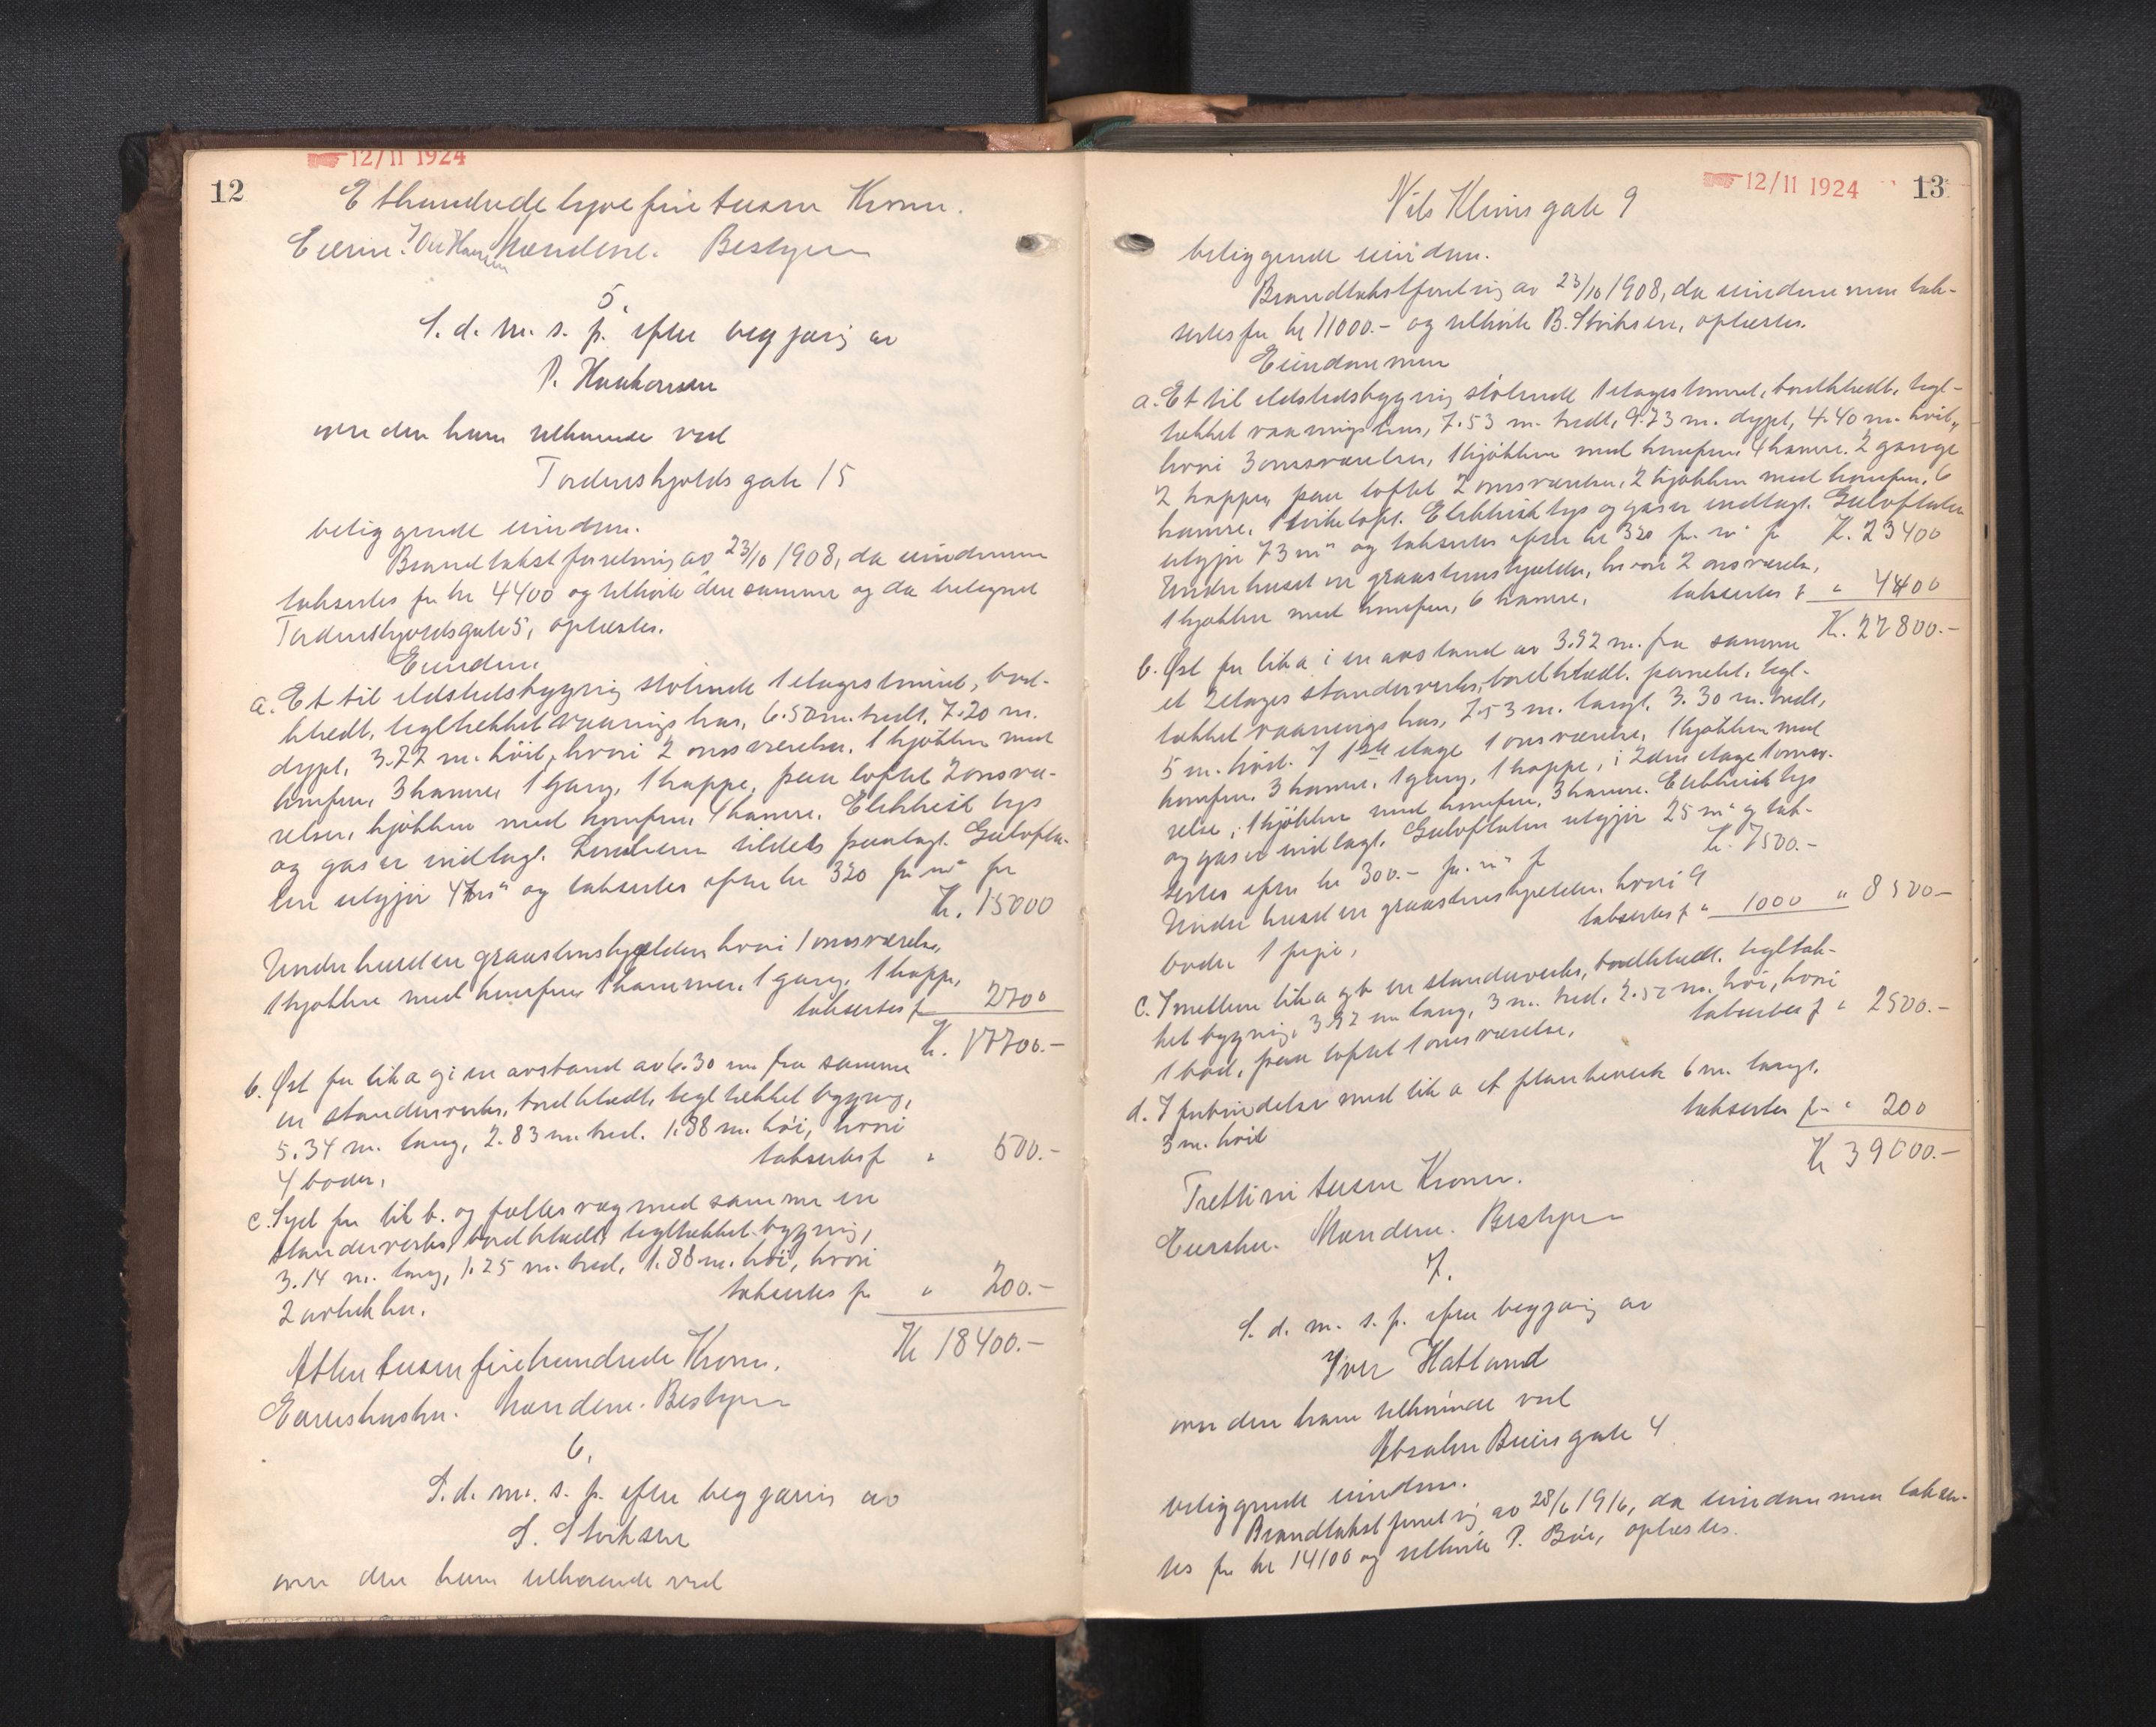 12/11 1924
12
Ethundrede tyve fire tusen Kroner.
Mændene. Bestyrer
5.
S. d. m. s. p. efter begjæring av
P. Haakonsen
over den ham tilhørende ved
Tordenskjolds gate 15
beliggende eiendom.
Brandtakstforretning av 23/10 1908, da eiendommen
taksertes for kr 4400 og tilhørte den samme og da betegnet
Tordenskjoldsgate 5, oplæstes.
Eiendom.
a. Et til ildstedsbygning stötende 1 etages tømret, bord-
klædt, tegltækket vaaningshus, 6.50 m. bredt, 7.20 m.
dypt, 3.77 m. höit, hvori 2 onsværelser, 1 kjökken med
komfur, 3 kamre, 1 gang, 1 trappe, paa loftet 2 onsvæ-
relser, kjökken med komfur, 4 kamre. Elektrisk lys
og gas er indlagt. tildels paalagt. Gulvfla-
ten utgjör 47 m² og taksertes efter kr 320 pr. m² for
Kr. 15000
Under huset er graastenskjelder, hvori 1 onsværelse,
1 kjøkken med komfur, 1 kammer, 1 gang, 1 trappe,
taksertes f 2700
Kr. 17700.-
b. Øst for lit a og i en avstand av 6.30 m fra samme
en standerverks, bordklædt, tegltækket bygning,
5.34 m. lang, 2.83 m. bred, 1.88 m. höi, hvori
4 boder, taksertes f " 500.-
c. Syd for lit b. og fælles væg med samme en
standerverks, bordklædt, tegltækket bygning,
3.14 m. lang, 1.25 m. bred, 1.88 m. höi, hvori
2 avlukker. taksertes for " 200.-
Kr 18400.-
Atten tusen firehundrede Kroner.
Mændene. Bestyrer
6.
S. d. m. s. p. efter begjæring av
S. Stoksen
over den ham tilhørende ved
12/11 1924
13
Nils Klims gate 9
beliggende eiendom.
Brandtakstforretning av 23/10 1908, da eiendommen tak-
sertes for kr 11000.- og tilhörte B. Stoksen, oplæstes.
Eiendommen
a. Et til ildstedsbygning stötende 1 etages tømret, bordklædt, tegl-
tækket vaaningshus, 7.53 m. bredt, 9.73 m. dypt, 4.40 m. höit,
hvori 3 onsværelser, 1 kjökken med komfur, 4 kamre, 2 gange
2 trapper, paa loftet 2 onsværelser, 2 kjökken med komfur, 6
kamre, 1 törkeloft. Elektrisk lys og gas er indlagt. Gulvflaten
utgjör 73 m² og taksertes efter kr 320 pr. m² for Kr. 23400
Under huset er graastenskjelder, hvori 2 onsværelser,
1 kjøkken med komfur, 6 kamre, taksertes f " 4400
Kr. 27800.-
b. Øst for lit a i en avstand av 3.92 m. fra samme
et 2 etages standerverks, bordklædt, panelet, tegl-
tækket vaaningshus, 7.53 m. langt, 3.30 m. bredt,
5 m. höit. I 1ste etage 1 onsværelse, 1 kjökken med
komfur, 3 kamre, 1 gang, 1 trappe, i 2den etage 1 onsvæ-
relse, 1 kjökken med komfur, 3 kamre. Elektrisk lys
og gas er indlagt. Gulvflaten utgjör 25 m² og tak-
sertes efter kr 300.- pr. m² f Kr. 7500.-
Under huset er graastenskjelder, hvori 9
boder 1 , taksertes f " 1000 " 8500.-
c. Imellem lit a og b en standerverks, bordklædt, tegltæk-
ket bygning, 3.92 m lang, 3 m. bred, 2.50 m. höi, hvori
1 bod, paa loftet 1 onsværelse, taksertes f " 2500.-
d. I forbindelse med lit a et plankeverk 6 m. langt,
3 m. höit taksertes f " 200
Kr 39000.-
Trettini tusen Kroner.
Mændene. Bestyrer
7.
S. d. m. s. p. efter begjæring av
Iver Hatland
over den ham tilhörende ved
Absalon Beiers gate 4
beliggende eiendom.
Brandtakstforretning av 28/6 1916, da eiendommen takser-
tes for kr 14100 og tilhörte P. Böe, oplæstes.